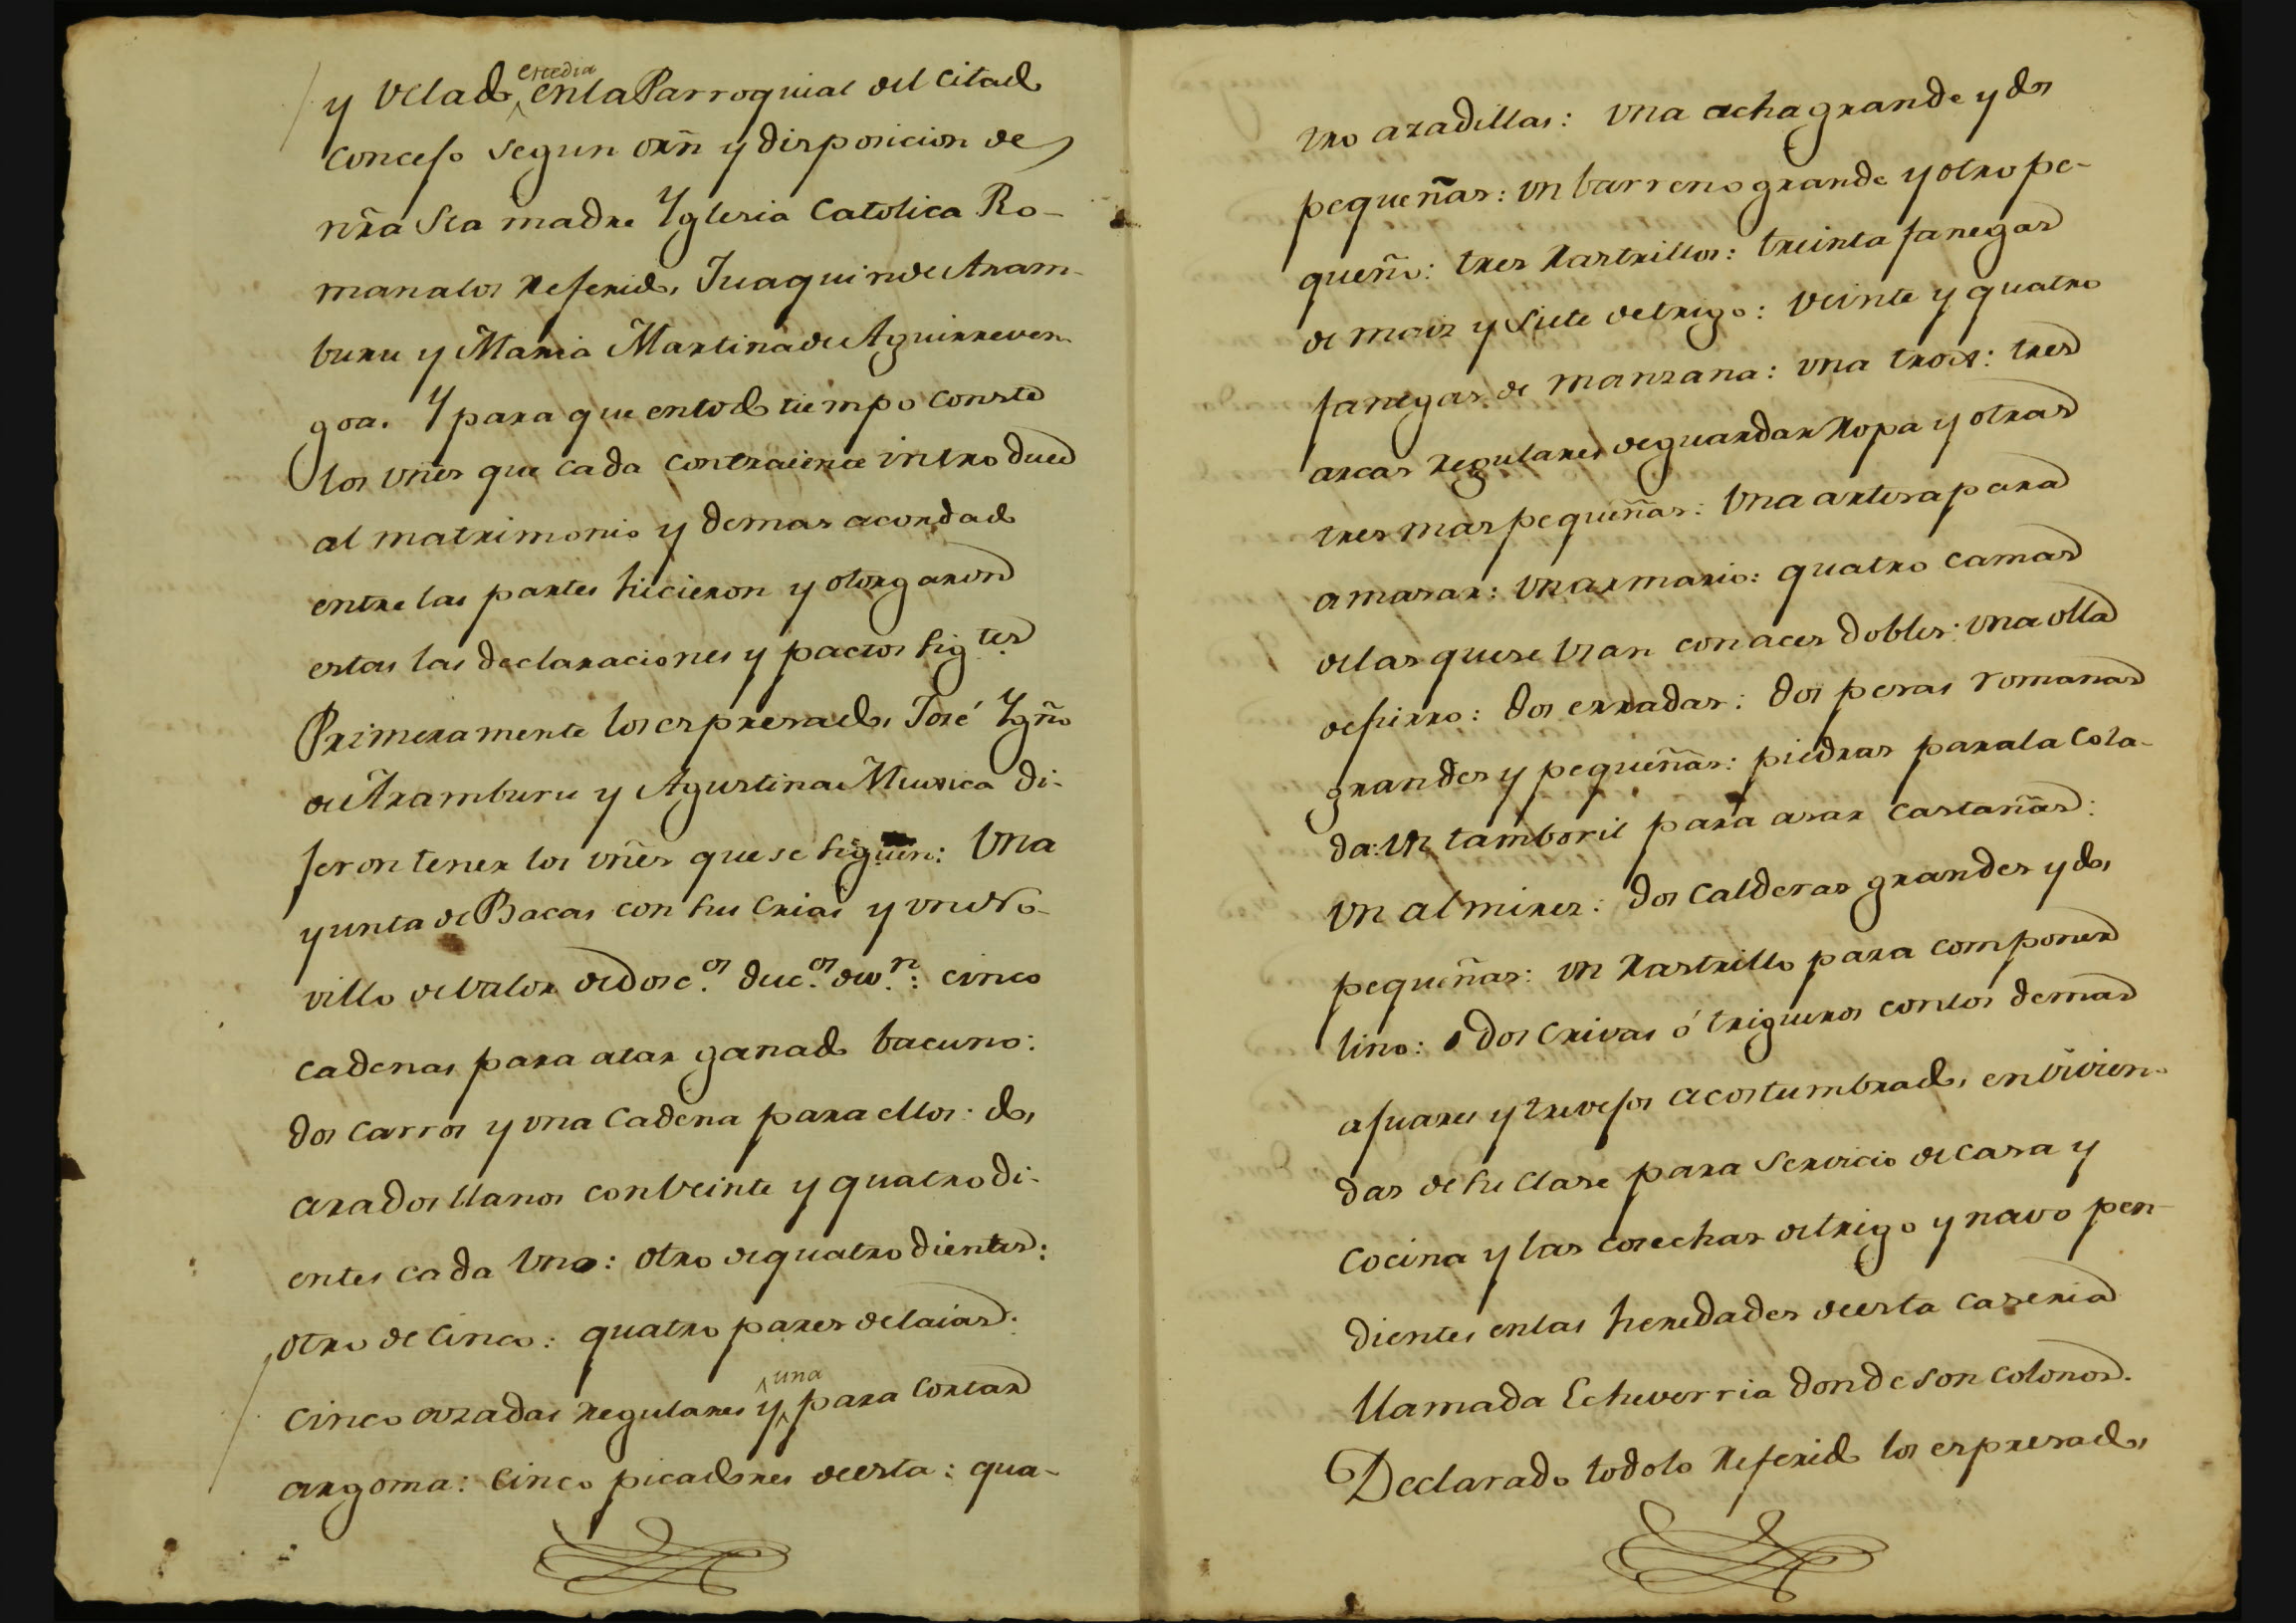 y velado ^este dia^ en la Parroquial del citado
Concejo segun orñ y disposicion de
nr̃a Sta madre Yglesia Catolica Ro-
mana los referidos Juaquin de Aram-
buru y Maria Martina de Aguirreven-
goa. Y para que en todo tiempo conste
los vñes que cada contraiente introduce
al matrimonio y demas acordado
entre las partes hicieron y otorgaron
estas las declaraciones y pactos sig.tes
Primeramente los espresados José Ygño
de Aramburu y Agustina Muxica di-
jeron tener los vñes que se siguen: Una
yunta de Bacas con sus crias y un No-
villo de valor de dosc.os duc.os de v.n: cinco
cadenas para atar ganado bacuno:
dos carros y una cadena para ellos: dos
arados llanos con veinte y quatro di-
entes cada uno: otro de quatro dientes:
otro de cinco: quatro pares de laias:
cinco azadas regulares y ^una^ para cortar
argoma: cinco picadores de esta: qua-
tro azadillas: una acha grande y dos
pequeñas: un barreno grande y otro pe-
queño: tres rastrillos: treinta fanegas
de maiz y siete de trigo: veinte y quatro
fanegas de manzana: una trox: tres
arcas regulares de guardar ropa y otras
tres mas pequeñas: una artesa para
amasar: un armario: quatro camas
de las que se usan con aces dobles: una olla
de fierro: dos erradas: dos pesas romanas
grandes y pequeñas: piedras para la cola-
da: un tamboril para asar castañas:
un almirez: dos calderas grandes y dos
pequeñas: un rastrillo para componer
lino: dos crivas ó trigueros con los demas
ajuares y trevejos acostumbrados en vivien-
das de su clase para servicio de casa y
cocina y las cosechas de trigo y navo pen-
dientes en las heredades de esta caseria
llamada Echeverria donde son colonos.
Declarado todo lo referido los espresados